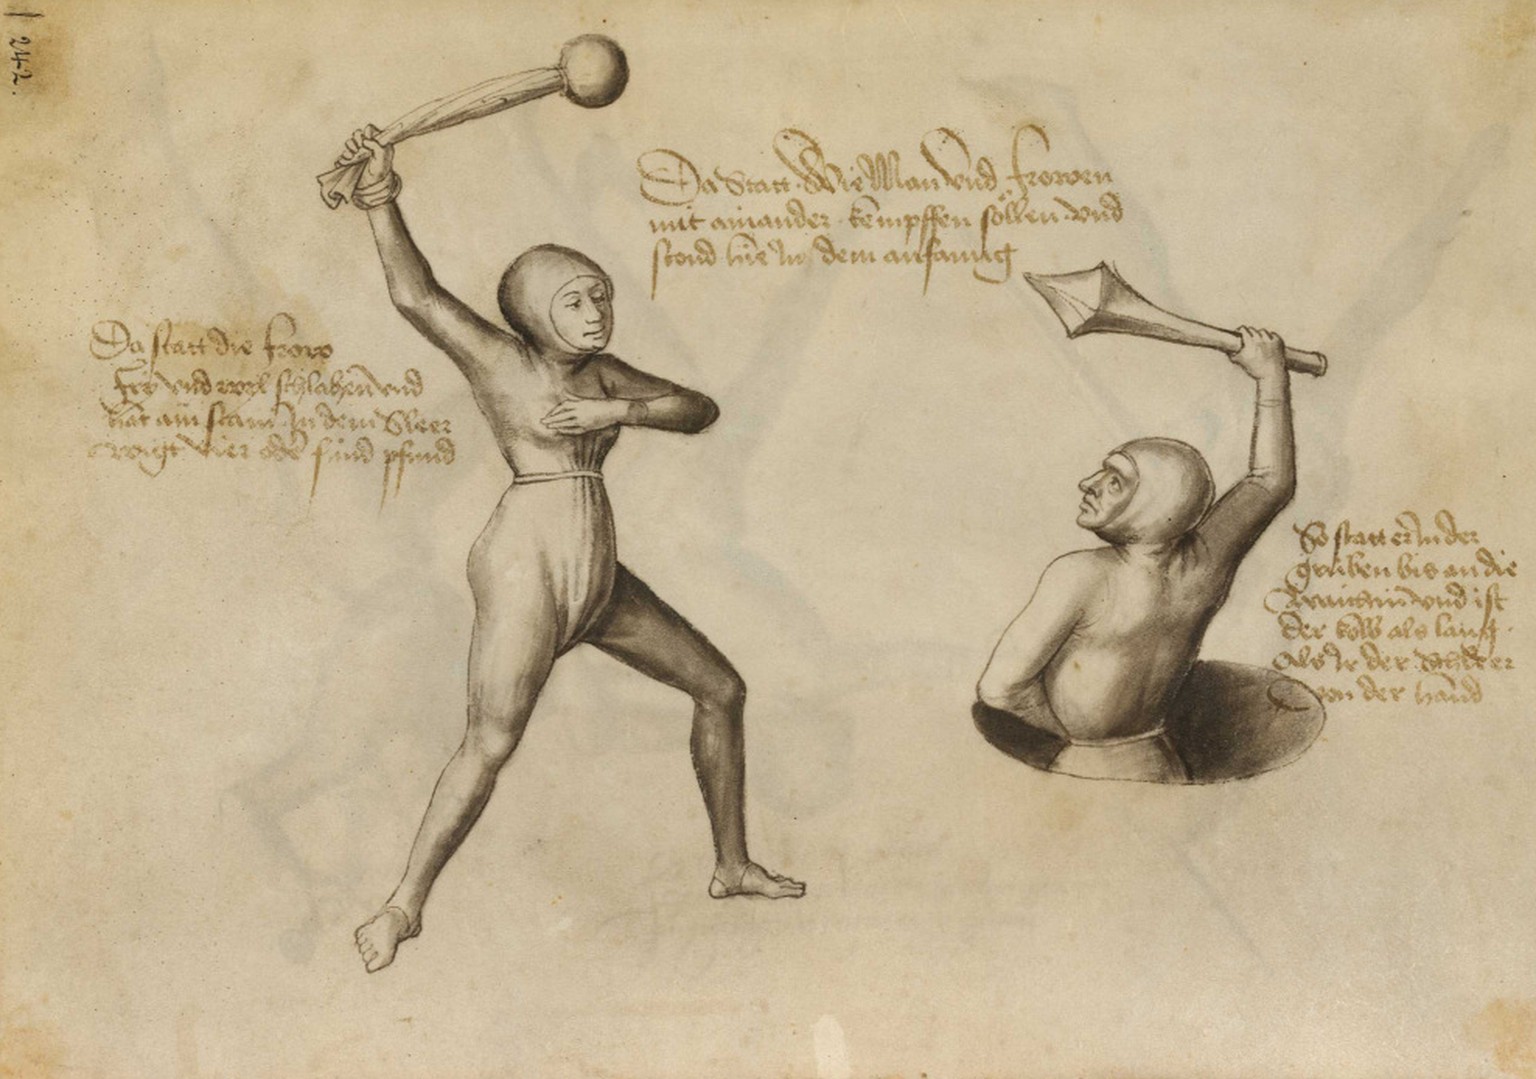 242.
Da Statt Wie Man vnd frowen
mit ainander kempffen söllen vnd
stond hie In dem anfang
Da statt die frow
fry vnd wyl schlahen vnd
hat ain stain In dem Sleer
wigt vier oder fünf pfund
So statt er In der
gruben bis an die
waichin vnd ist
der kolb als lang
als Ir der Schleer
von der hand